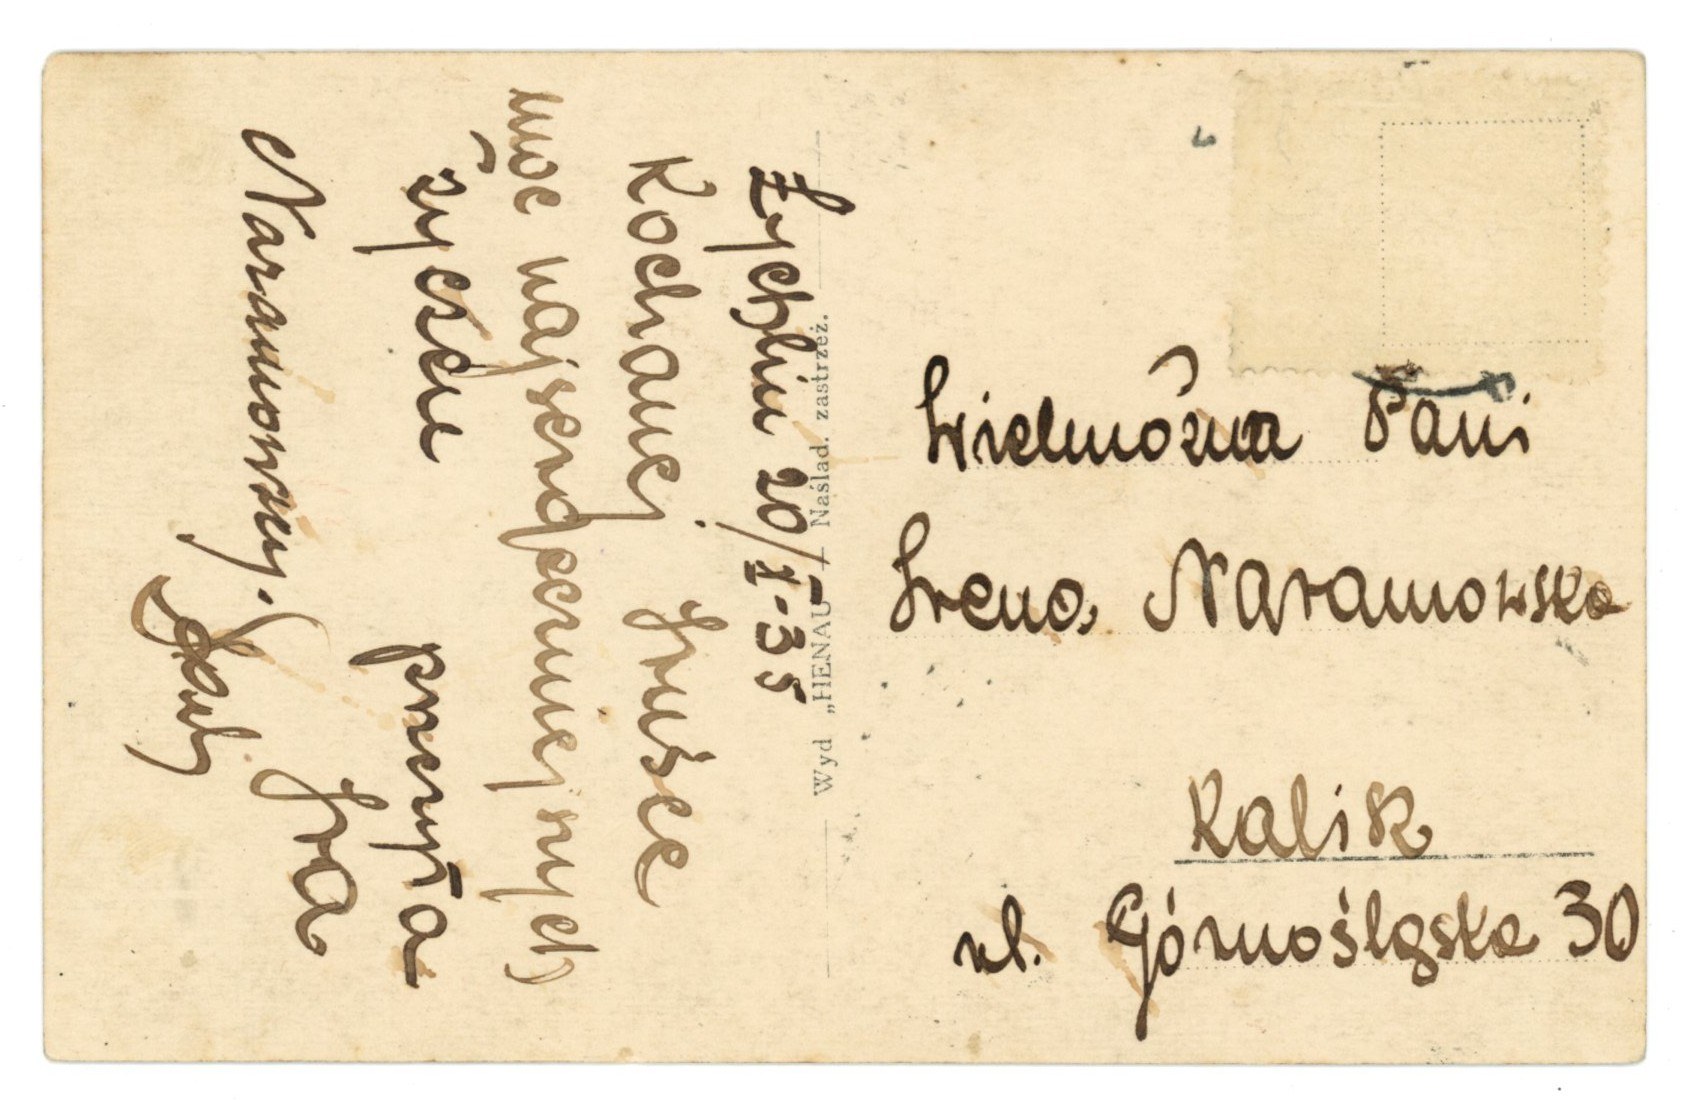 Żychlin 20/I-35
Kochanej Iruśce
moc najserdeczniejszych
życzeń przesyła
Ira
Naramowskiej.
Wyd „HENAU” Naślad. zastrzeż.
Wielmożna Pani
Irena Naramowska
Kalisz
ul. Górnośląska 30